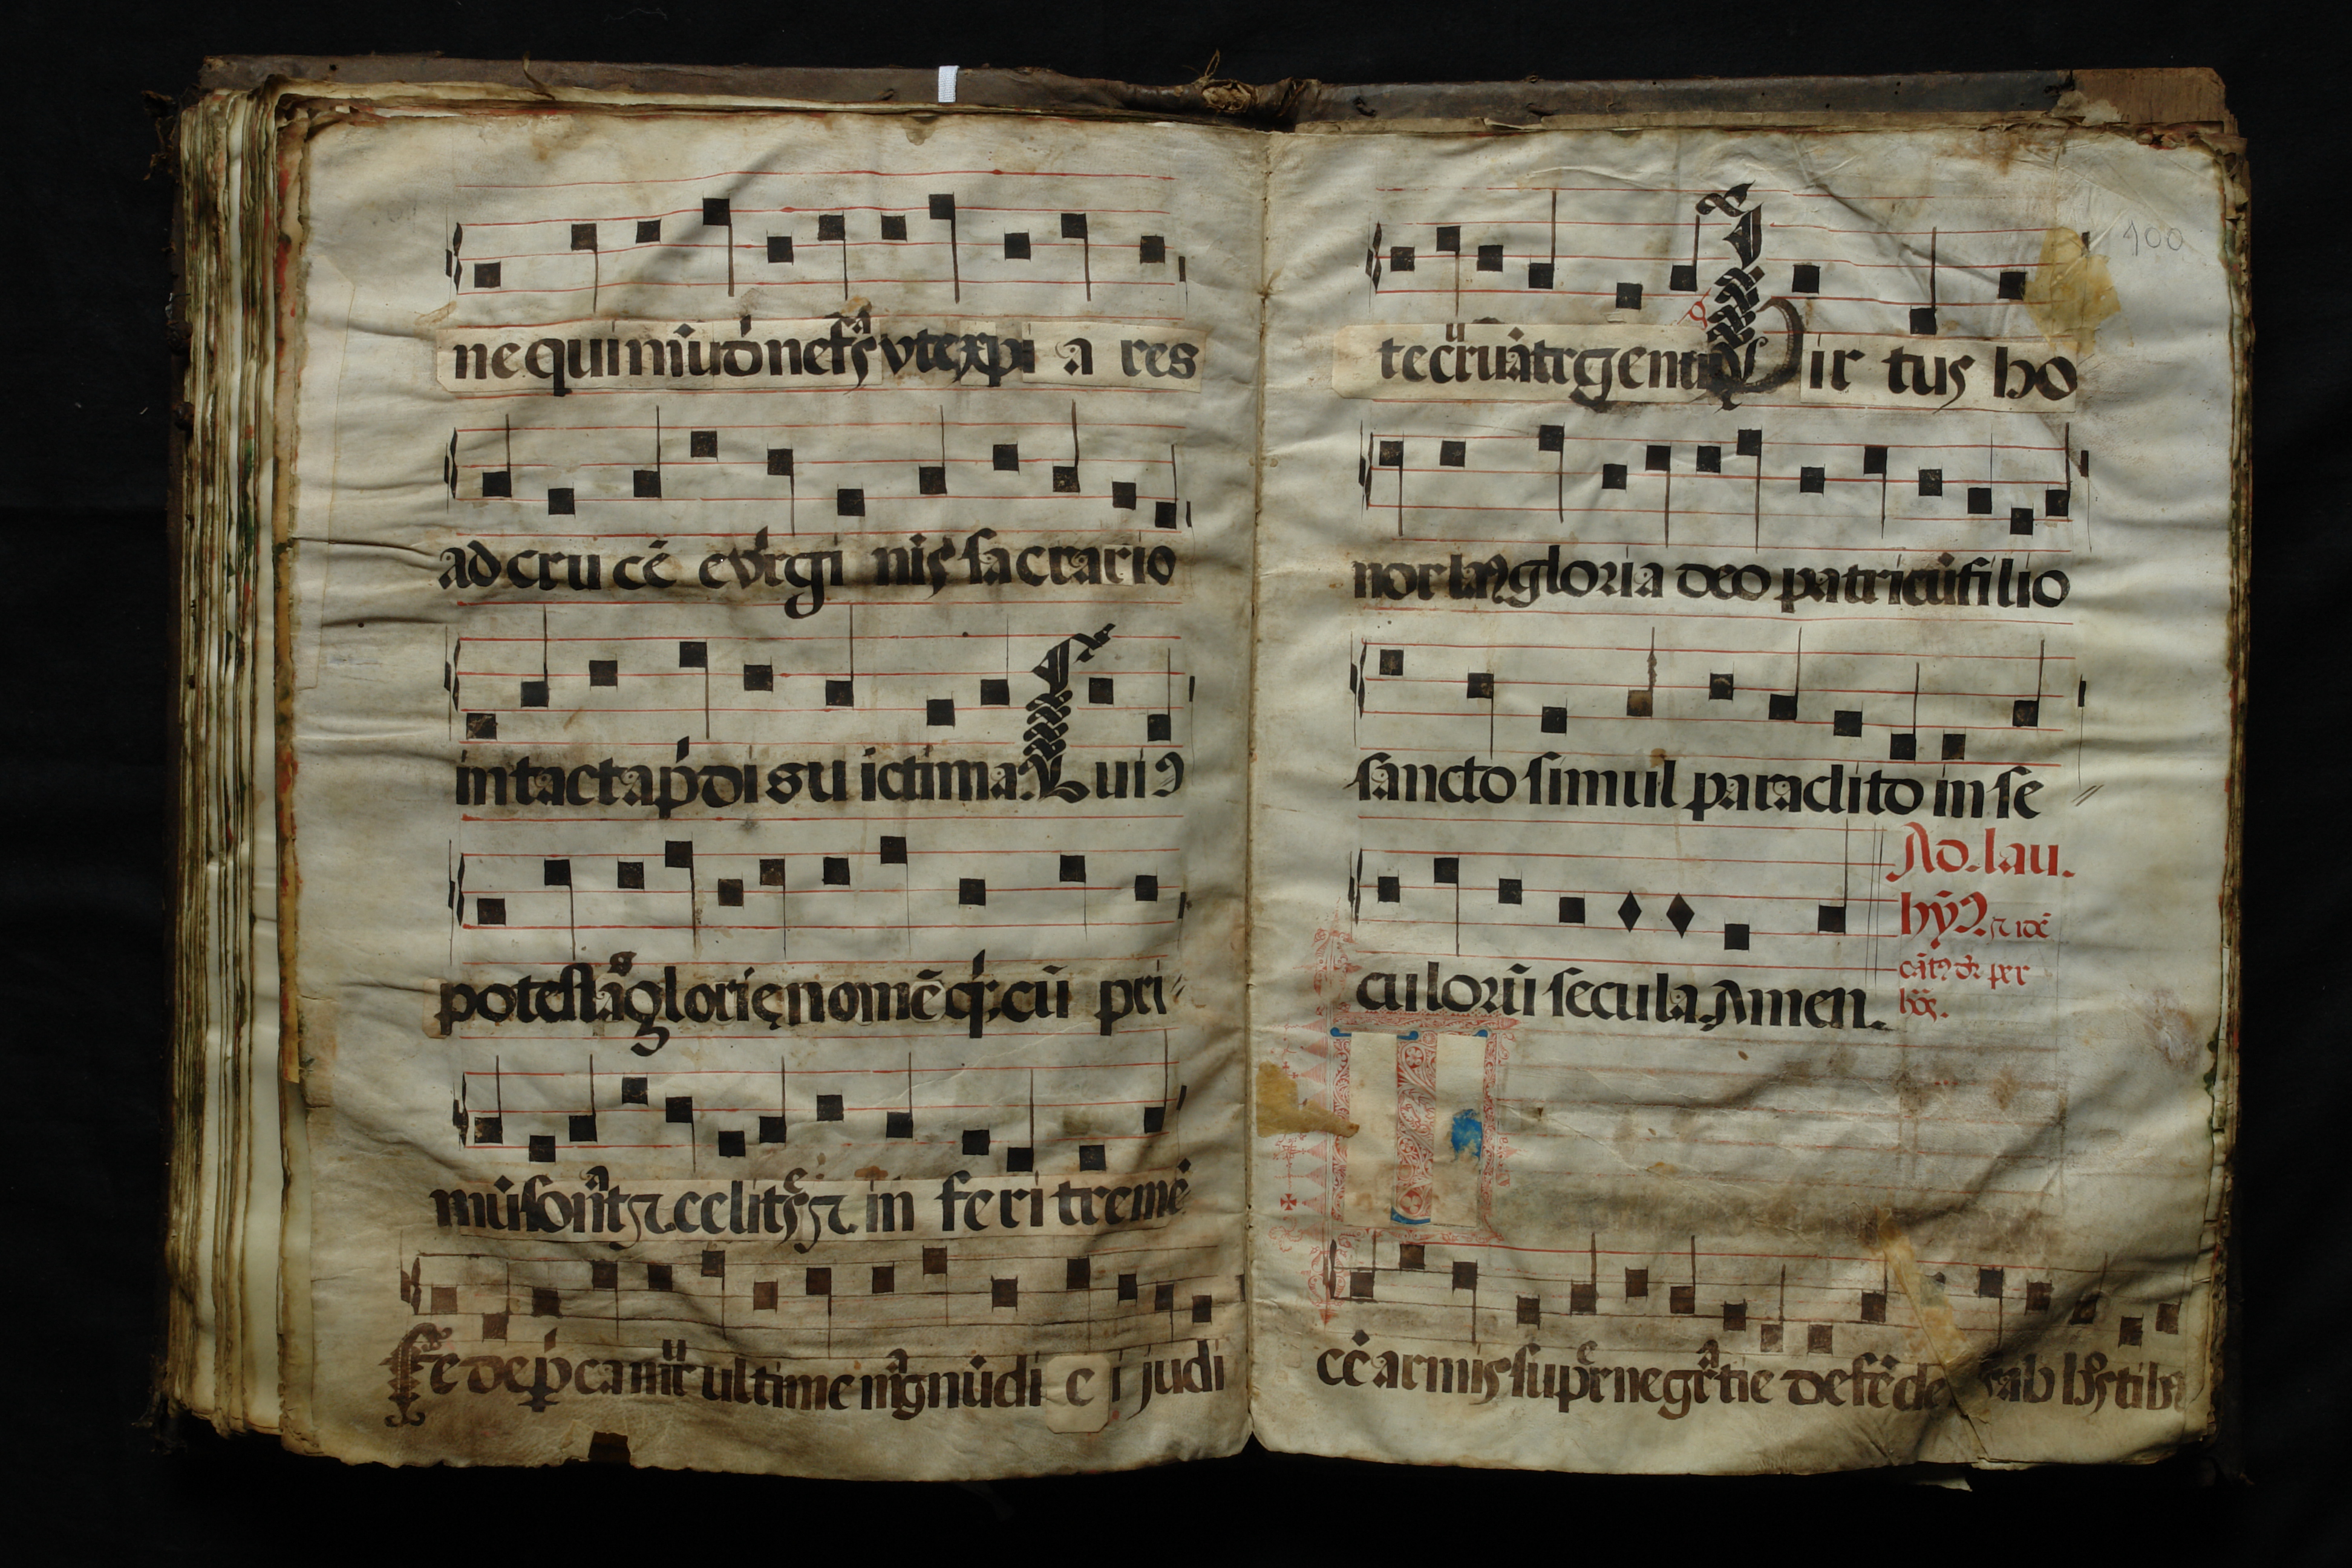 ne qui mūdi nefꝰ vt expi a res
ad cru cē e virgi nis sacrario
intacta pdi su ictima. Cuiꝰ
potestas glorie nomēq; cū pri
mū sonāt et celites et in feri tremē
Te depcamur ultime magne diei judi
te curvātr genu Vir tus ho
nor laꝰ gloria deo patri cū filio
sancto simul paraclito in se
culorū secula. Amen.
Ad. lau.
hȳ
100
cē armis superne gratie defēde ab hostibꝰ